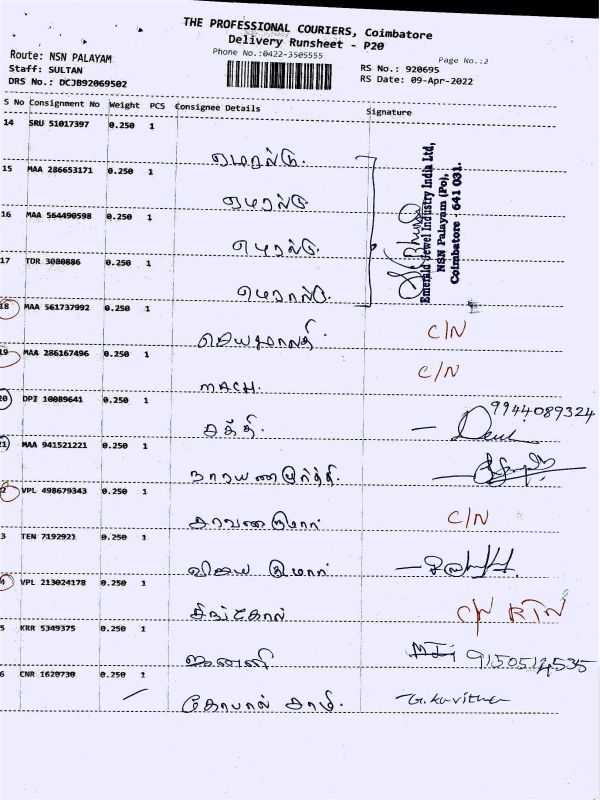 THE PROFESSIONAL COURIERS, Coimbatore
Delivery Runsheet - P20
Phone No.:0422-3505555
Page No.:2
Route: NSN PALAYAM
Staff: SULTAN
DRS No.: DCJB92069502
RS No.: 920695
RS Date: 09-Apr-2022
S No Consignment No Weight PCS Consignee Details Signature
14 SRU 51017397 0.250 1 எமரால்டு.
15 MAA 286653171 0.250 1 எமரால்டு
16 MAA 564490598 0.250 1 எமரால்டு
17 TDR 3080886 0.250 1 எமரால்டு.
Emerald Jewel Industry India Ltd,
NSN Palayam (Po),
Coimbatore - 641 031.
18 MAA 561737992 0.250 1 C/N
19 MAA 286167496 0.250 1 MACH. C/N
20 DPZ 10089641 0.250 1 சக்தி. 9944089324
21 MAA 941521221 0.250 1 நாராயணமூர்த்தி.
2 VPL 498679343 0.250 1 சரவணகுமார் C/N
3 TEN 7192921 0.250 1 விஜய குமார்
4 VPL 213024178 0.250 1 C/N RTN
5 KRR 5349375 0.250 1 ஜனனி 9150514535
6 CNR 1620730 0.250 1 கோபால் சாமி. G. Kavitha